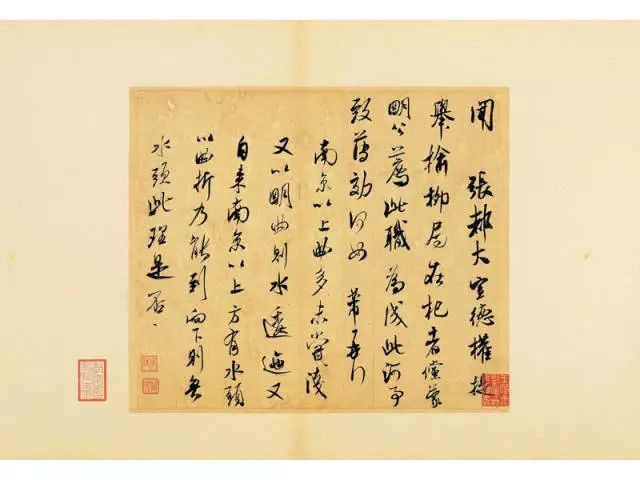 聞 張都大宣德權提
舉榆柳局在杞者儻蒙
明公薦此職為成此河事
致薄効何如 芾
南京以上曲多未嘗淺
又以明曲則水逶迤又
自來南京以上方有水頭
以曲折乃能到向下則無
水頭此理是否